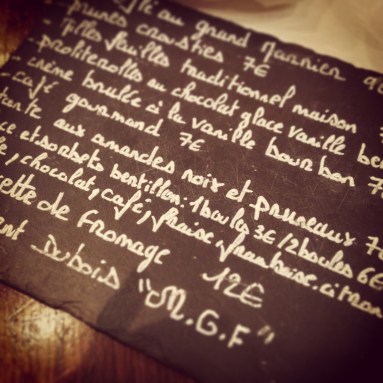 au grand Marnier
prunes crousties 7€
- Milles feuilles traditionnel maison
- profiterolles au chocolat glace vanille ber
- crème brulée à la vanille bourbon 7
- café gourmand 7€
tarte aux amandes noix et pruneaux 7€
ce et sorbets bertillon: 1 boules 3€ / 2 boules 6€
, chocolat, café, fraise, framboise, citron
ette de fromage 12€
ent Dubois "M.G.F"